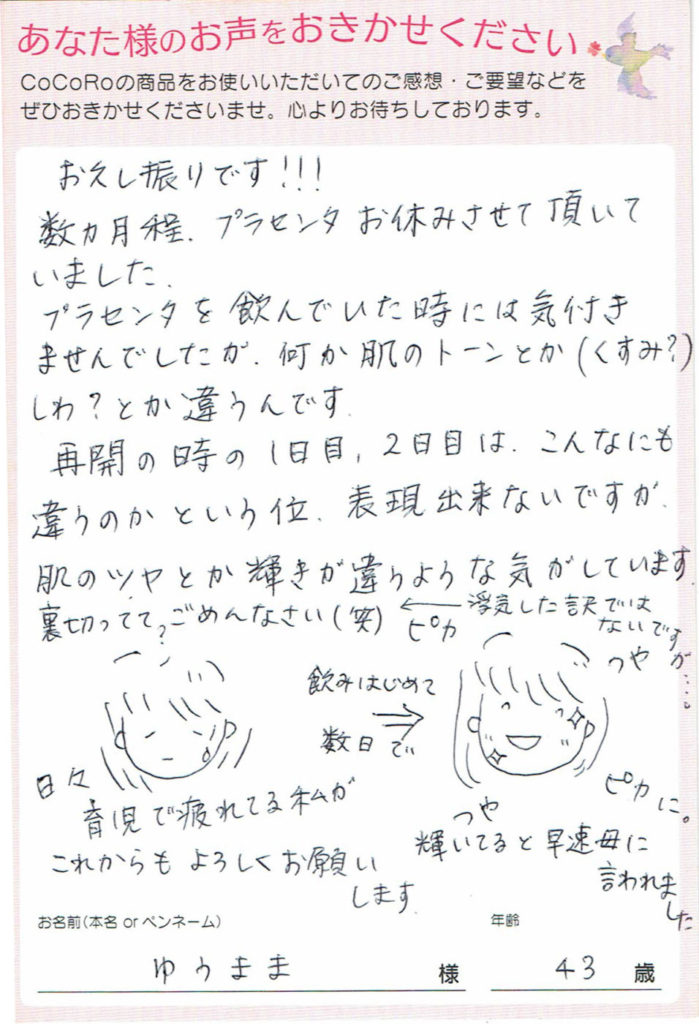 あなた様のお声をおきかせください
CoCoRoの商品をお使いいただいてのご感想・ご要望などを
ぜひおきかせくださいませ。心よりお待ちしております。
おえし振りです!!!
数カ月程、プラセンタお休みさせて頂いて
いました。
プラセンタを飲んでいた時には気付き
ませんでしたが、何か肌のトーンとか(くすみ?)
しわ?とか違うんです
再開の時の1日目,2日目は、こんなにも
違うのかという位、表現出来ないですが、
肌のツヤとか輝きが違うような気がしています
裏切ってて?ごめんなさい(笑)←浮気した訳では
ないです
が…。
ピカ
つや
飲みはじめて
⇒
数日で
日々
育児で疲れてる私が
ピカに。
つや
輝いてると早速母に
言われました
これからもよろしくお願い
します
お名前(本名 or ペンネーム)
年齢
ゆうまま 様
43 歳